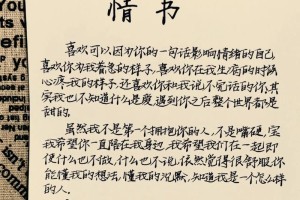 情书
喜欢可以因为你的一句话影响情绪的自己,
喜欢你为我着急的样子,喜欢你在我生病的时候
心疼我的样子,还喜欢你和我说不完话的你,其
实我也不知道什么是爱,遇到你之后整个世界都是
甜的。
虽然我不是第一个拥抱你的人,不是嘴硬,宝
我希望你一直陪在我身边,我希望我们在一起即
使什么也不做,什么也不说,依然觉得很舒服你
能懂我的想法,懂我的沉默,知道我是一个怎么样
的人。